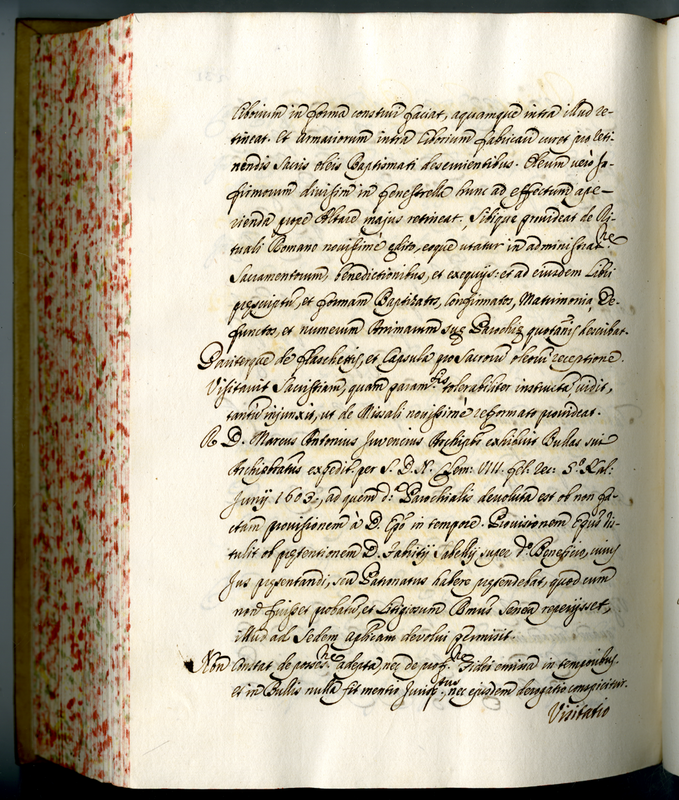 Ciborium in forma construi faciat, aquamque intra illud re-
tineat. Et armariorum intra Ciborium fabricari curet pro reti-
nendis Sacris oleis Baptismati deservientibus. Oleum verò In-
firmorum divisim in fenestrella hunc ad effectum ape-
rienda prope Altare majus retineat. Sibique provideat de Ri-
tuali Romano novissimè edito, eoque utatur in administratne
Sacramentorum, benedictionibus, et exequijs: et ad eiusdem Libri
prescriptu, et formam Baptizatos, Confirmatos, Matrimonia, De-
functos, et numerum Animarum suę Parochię quotannis describat.
Pariterque de flaschettis, et Capsula pro Sacrorum oleorū receptione.
Visitavit Sacristiam, quam param.tis tolerabiliter instructā vidit,
tantū injunxit, ut de Missali novissimè reformato provideat.
R. D. Marcus Antonius Juvencius Archipbr exhibuit Bullas sui
Archipbratus expedit. per S. D. N. Clem: VIII. fel: rec: 5.o Kal:
Junij 1603, ad quem d.a Parochialis devoluta est ob non fa-
ctam provisionem à D. Epō in tempore. Provisionem Epūs di-
stulit ob pręsentionem D. Fabritij Sabellij super d.o Beneficio, cuius
Jus pręsentandi, seu Patronatus habere prętendebat, quod cum
non fuisset probatū, et litigiosum Emus reperijsset,
illud ad Sedem Aplicam devolui permisit.
Non Constat de posses.ne adepta, nec de prof.ne Fidei emissa in temporibus.
et in Bullis nulla fit mentio Jurisp.tus nec ejusdem derogatio conspicitur.
Visitatio